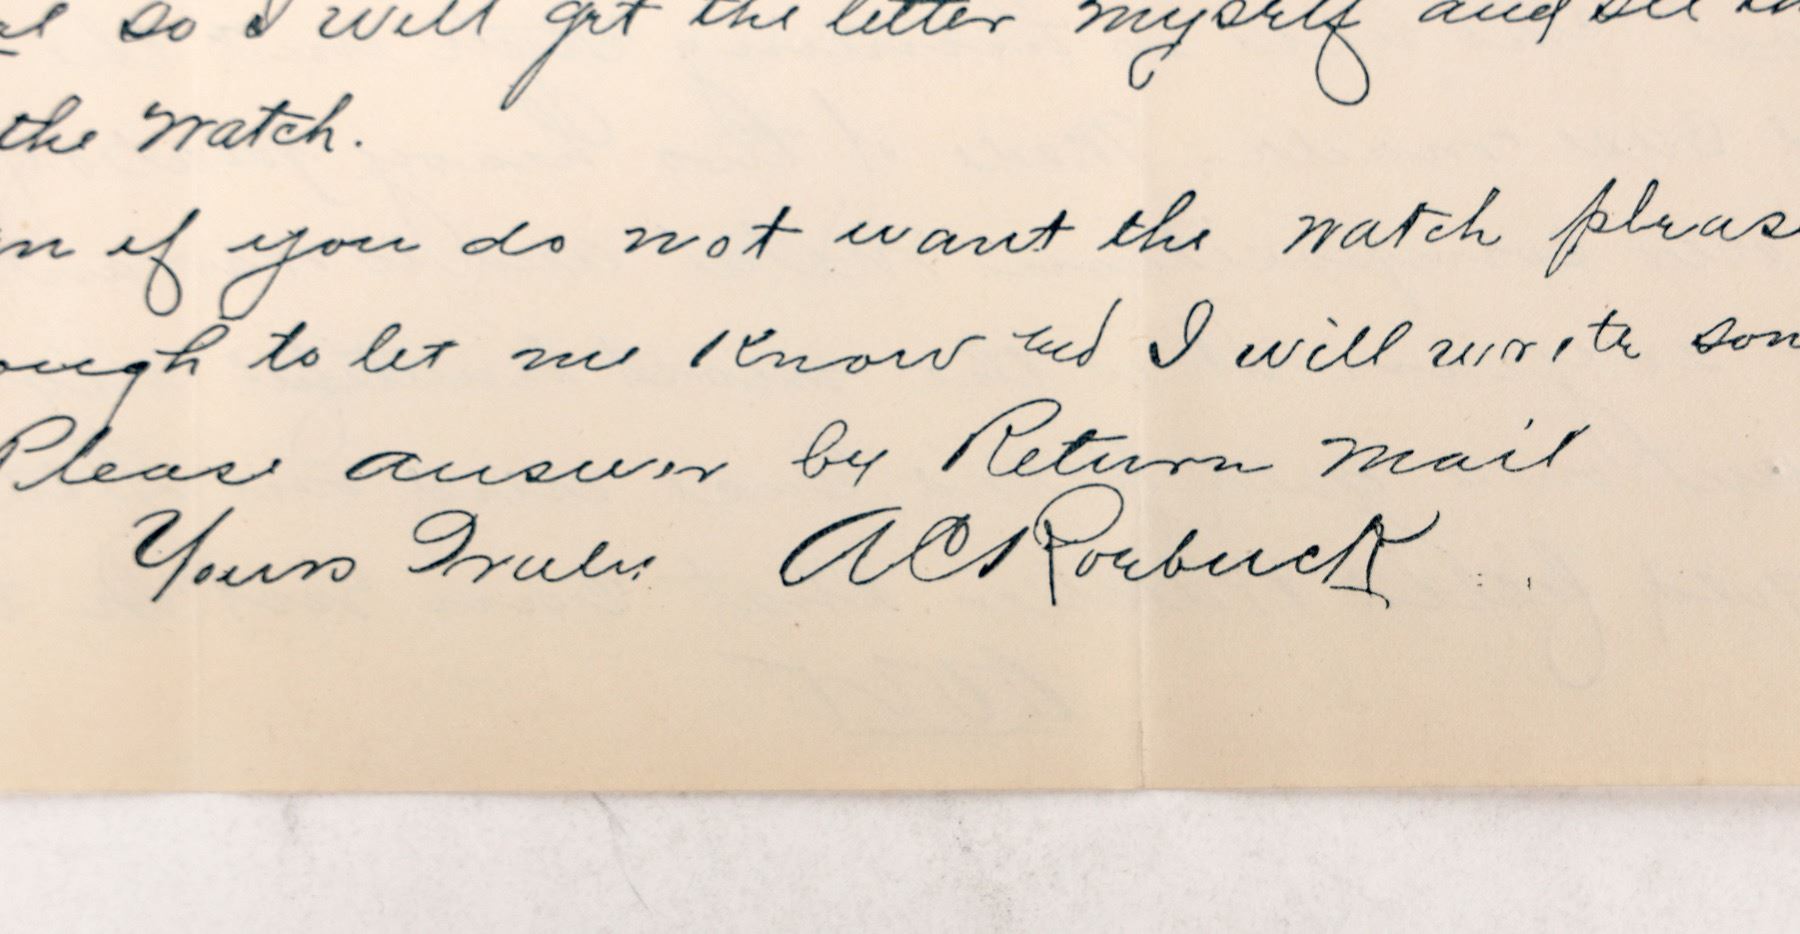 so I will get the letter myself and see
the watch.
if you do not want the watch pleas
ough to let me know and I will write som
Please answer by Return mail
Yours Truly A C Roebuck